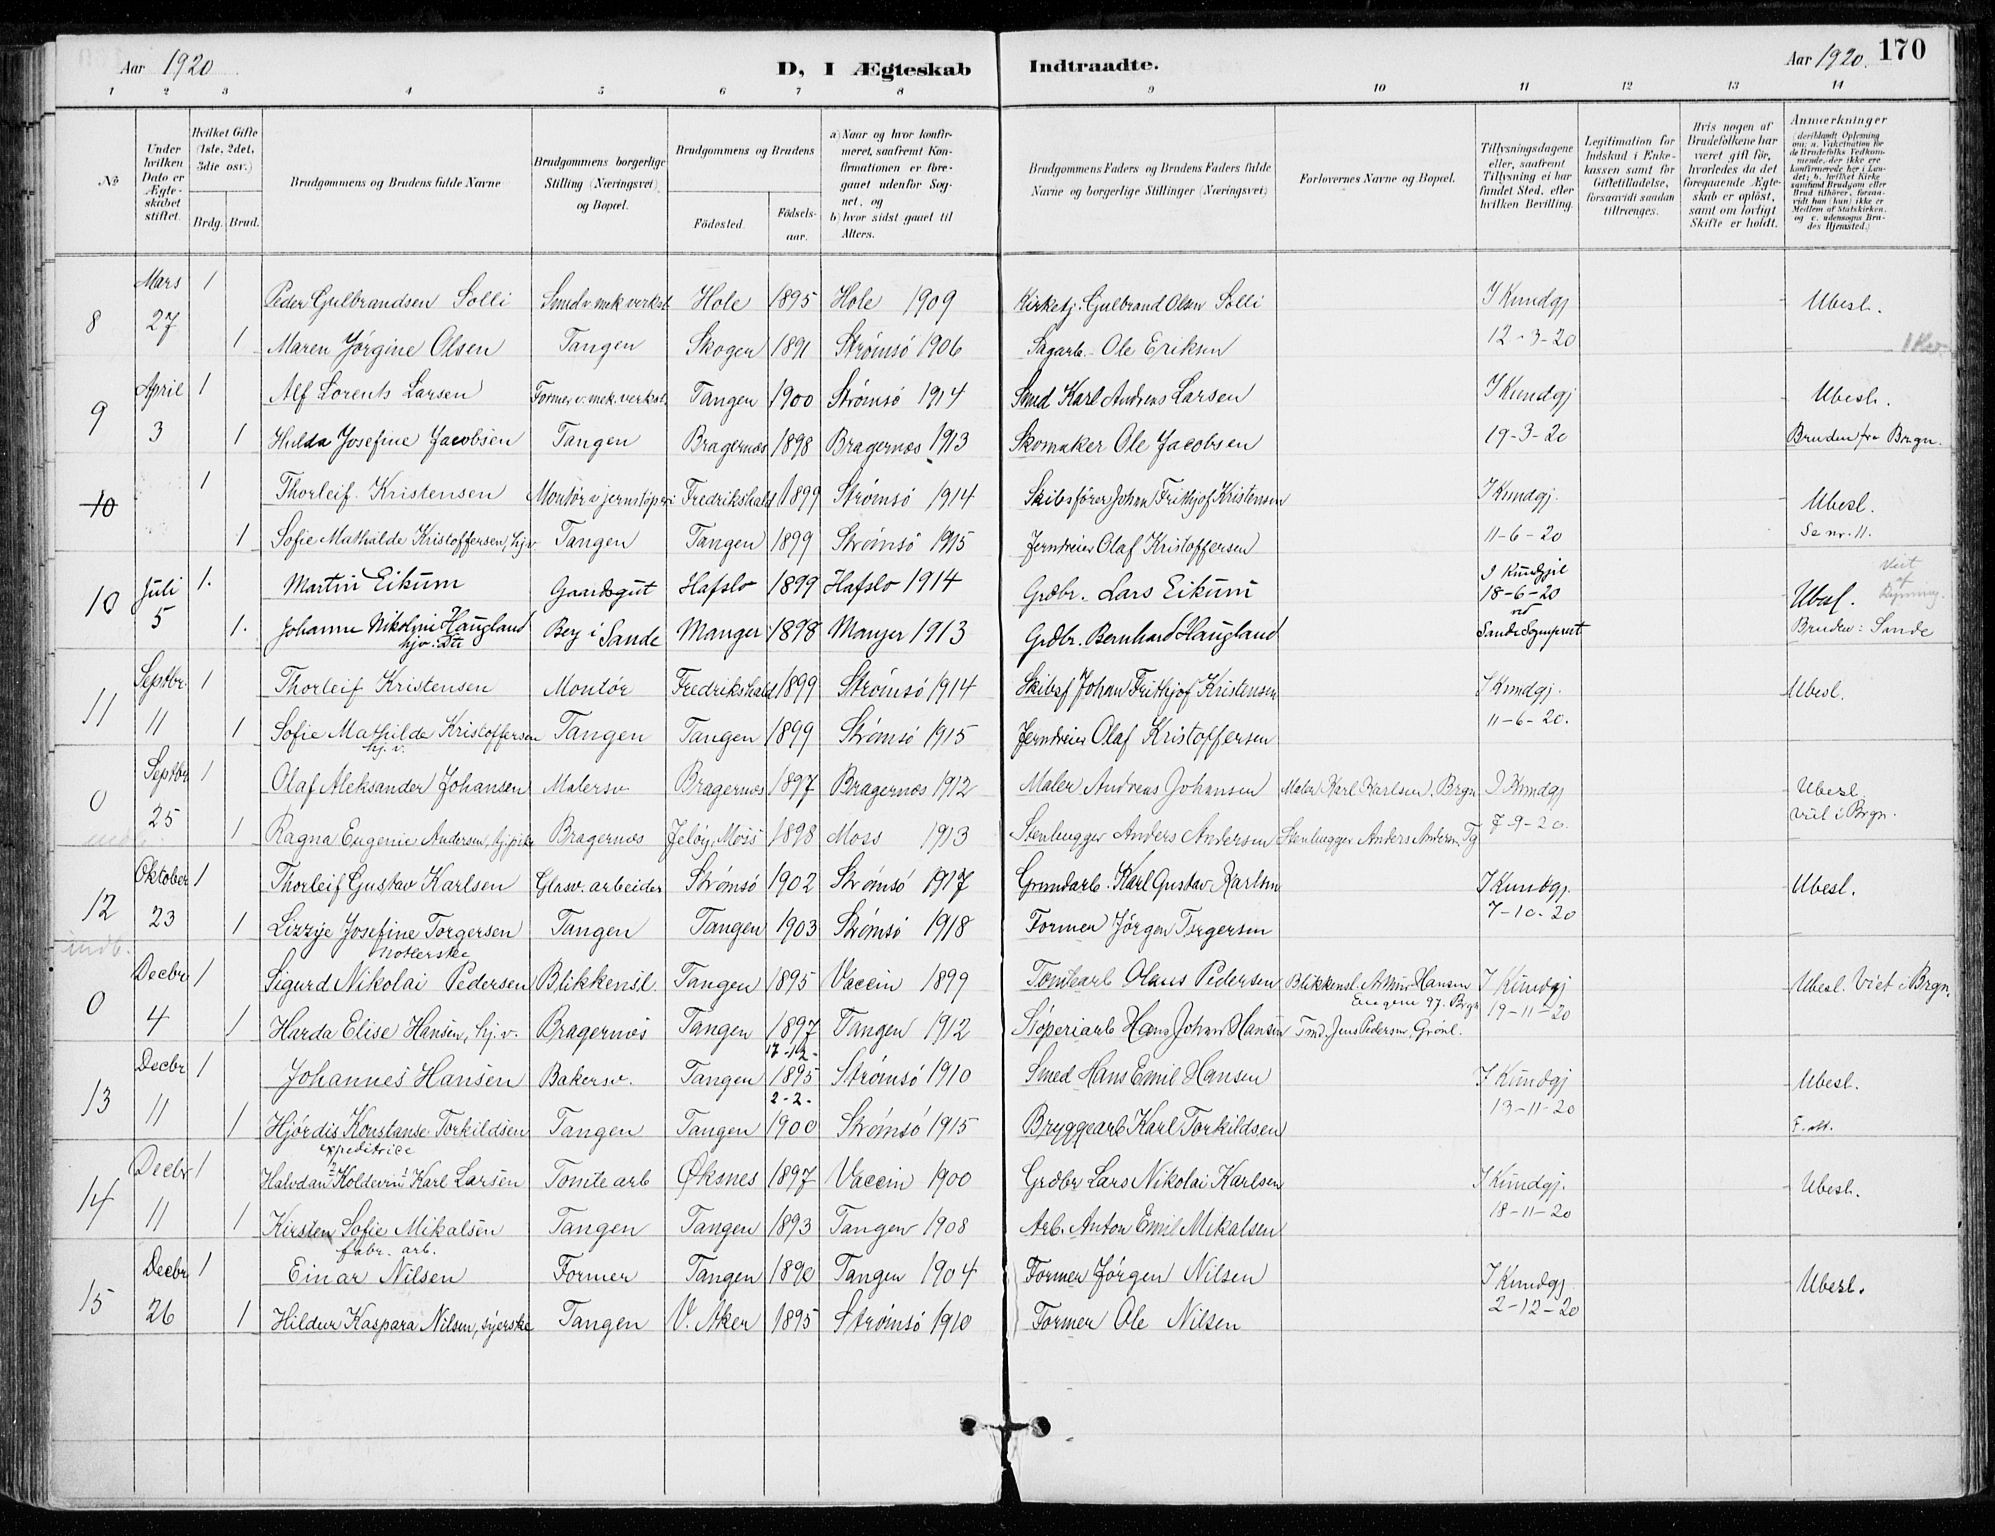 Aar 1920
D, I Ægteskab Indtraadte.
Aar 1920. 170
1 2 3 4 5 6 7 8 9 10 11 12 13 14
No
Under hvilken Dato er Ægteskabet stiftet.
Hvilket Gifte (1ste, 2det, 3die osv.)
Brdg. Brud.
Brudgommens og Brudens fulde Navne
Brudgommens borgerlige Stilling (Næringsvei) og Bopæl.
Brudgommens og Brudens
Fødested.
Fødselsaar.
a) Naar og hvor konfirmeret, saafremt Konfirmationen er foregaaet udenfor Sognet, og
b) hvor sidst gaaet til Alters.
Brudgommens Faders og Brudens Faders fulde Navne og borgerlige Stillinger (Næringsvei)
Forlovernes Navne og Bopæl.
Tillysningsdagene eller, saafremt Tillysning ei har fundet Sted, efter hvilken Bevilling.
Legitimation for Indskud i Enkekassen samt for Giftetilladelse, forsaavidt saadan tiltrænges.
Hvis nogen af Brudefolkene har været gift før, hvorledes da det foregaaende Ægteskab er opløst, samt om lovligt Skifte er holdt.
Anmærkninger (deriblandt Oplysning om: a. Vaccination for de Brudefolks Vedkommende, der ikke ere konfirmerede her i Landet; b. hvilket Kirkesamfund Brudgom eller Brud tilhører, forsaavidt han (hun) ikke er Medlem af Statskirken, og c. udensogns Brudes Hjemsted.)
8 Mars 27 1 Peder Gulbrandsen Solli Smed v. mek verkst Hole 1895 Hole 1909 Kirketj. Gulbrand Olsen Solli I Kundgj Ubesl.
1 Maren Jørgine Olsen Tangen Skoger 1891 Strømsö 1906 Sagarb. Ole Eriksen 12-3-20
9 April 3 1 Alf Lorents Larsen Former v. mek. verkst. Tangen 1900 Strømsö 1914 Smed Karl Andreas Larsen I Kundgj Ubesl.
1 Hulda Josefine Jacobsen Tangen Bragernæs 1898 Bragernæs 1913 Skomaker Ole Jacobsen 19-3-20 Bruden fra Brgn.
10 1 Thorleif Kristensen Montør v jernstøperi Fredrikshald 1899 Strømsö 1914 Skibsfører Johan Frithjof Kristensen I Kundgj. Ubesl.
1 Sofie Mathilde Kristoffersen, hj.v Tangen Tangen 1899 Strømsö 1915 Jerndreier Olaf Kristoffersen 11-6-20 Se nr. 11.
10 Juli 5 1. Martin Eikum Gaardsgut Hafslo 1899 Hafslo 1914 Grdbr. Lars Eikum I Kundgj 18-6-20 Ubesl.
1. Johanne Nikoline Haugland Berg i Sande Manger 1898 Manger 1913 Grdbr. Bernhard Haugland ved Sande Sogneprest Bruden: Sande
11 Septbr. 11 1 Thorleif Kristensen Montør Fredrikshald 1899 Strømsö 1914 Skibsf Johan Frithjof Kristensen I Kundgj. Ubesl.
1 Sofie Mathilde Kristoffersen hj.v. Tangen Tangen 1899 Strømsö 1915 Jerndreier Olaf Kristoffersen 11-6-20.
0 Septbr 25 1 Olaf Aleksander Johansen Malersv Bragernæs 1897 Bragernæs 1912 Maler Andreas Johansen Maler Karl Karlsen, Brgn I Kundgj Ubesl.
1 Ragna Eugenie Andersen, hj.pike Bragernæs Jeløy, Moss 1898 Moss 1913 Stenhugger Anders Andersen Stenhugger Anders Andersen, Tg 7-9-20. viel i Brgn.
12 Oktober 23 1 Thorleif Gustav Karlsen Glasv. arbeider Strømsö 1902 Strømsö 1917 Grundarb. Karl Gustav Karlsen I Kundgj. Ubesl.
1 Lizzye Josefine Torgersen Tangen Tangen 1903 Strømsö 1918 Former Jørgen Torgersen 7-10-20
indb.
0 Decbr 4 1 Sigurd Nikolai Pedersen Blikkensl. Tangen 1895 Vaccin 1899 Tomtearb Olaus Pedersen Blikkensl. Hansen I Kundgj Ubesl. Viet i Brgn.
1 Harda Elise Hansen, hj.v. Bragernæs Tangen 1897 Tangen 1912 Støperiarb Hans Johan Hansen Tmd. Jens Pedersen, Grønl. 19-11-20
13 Decbr 11 1 Johannes Hansen Bakersv. Tangen 17-12- 1895 Strømsö 1910 Smed Hans Emil Hansen I Kundgj Ubesl.
1 Hjørdis Konstanse Torkildsen expeditrice Tangen Tangen 2-2- 1900 Strømsö 1915 Bryggearb Karl Torkildsen 13-11-20 F. att.
14 Decbr 11 1 Halvdan Koldevin Karl Larsen Tomtearb Øksnes 1897 Vaccin 1900 Grdbr Lars Nikolai Karlsen I Kundgj. Ubesl.
1 Kirsten Sofie Mikalsen fabr. arb. Tangen Tangen 1893 Tangen 1908 Arb. Anton Emil Mikalsen 18-11-20
15 Decbr 26 1 Einar Nilsen Former Tangen 1890 Tangen 1904 Former Jørgen Nilsen I Kundgj Ubesl.
1 Hildur Kaspara Nilsen, syerske Tangen V. Aker 1895 Strømsö 1910 Former Ole Nilsen 2-12-20